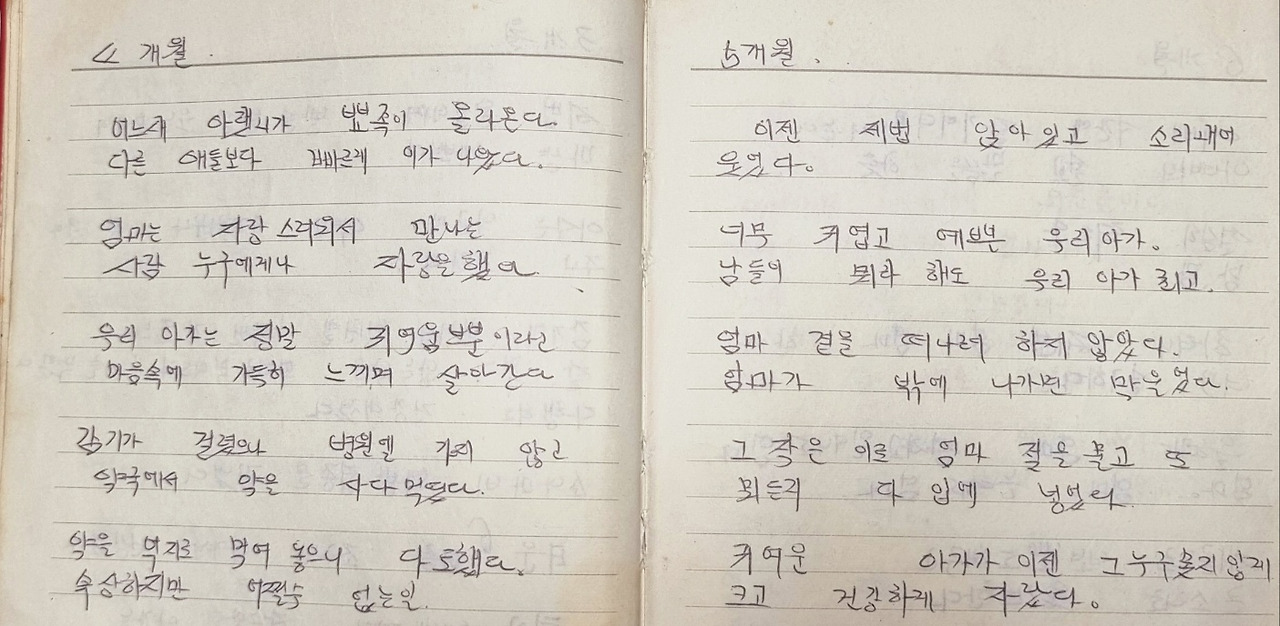 4 개월.
어느새 아랫니가 뾰족이 올라온다.
다른 애들보다 빠르게 이가 나왔다.
엄마는 자랑 스러워서 만나는
사람 누구에게나 자랑을 했다.
우리 아가는 정말 귀여움뿐이라고
마음속에 가득히 느끼며 살아간다
감기가 걸렸으나 병원엔 가지 않고
약국에서 약을 사다 먹였다.
약을 억지로 먹여 놓으니 다 토했다.
속상하지만 어쩔수 없는일.
5개월.
이젠 제법 앉아 있고 소리내어
웃었다.
너무 귀엽고 예쁜 우리아가.
남들이 뭐라 해도 우리 아가 최고.
엄마 곁을 떠나려 하지 않았다.
엄마가 밖에 나가면 막 울었다.
그 작은 이로 엄마 젖을 물고 또
뭐든지 다 입에 넣었다.
귀여운 아가가 이젠 그 누구 못지않게
크고 건강하게 자랐다.